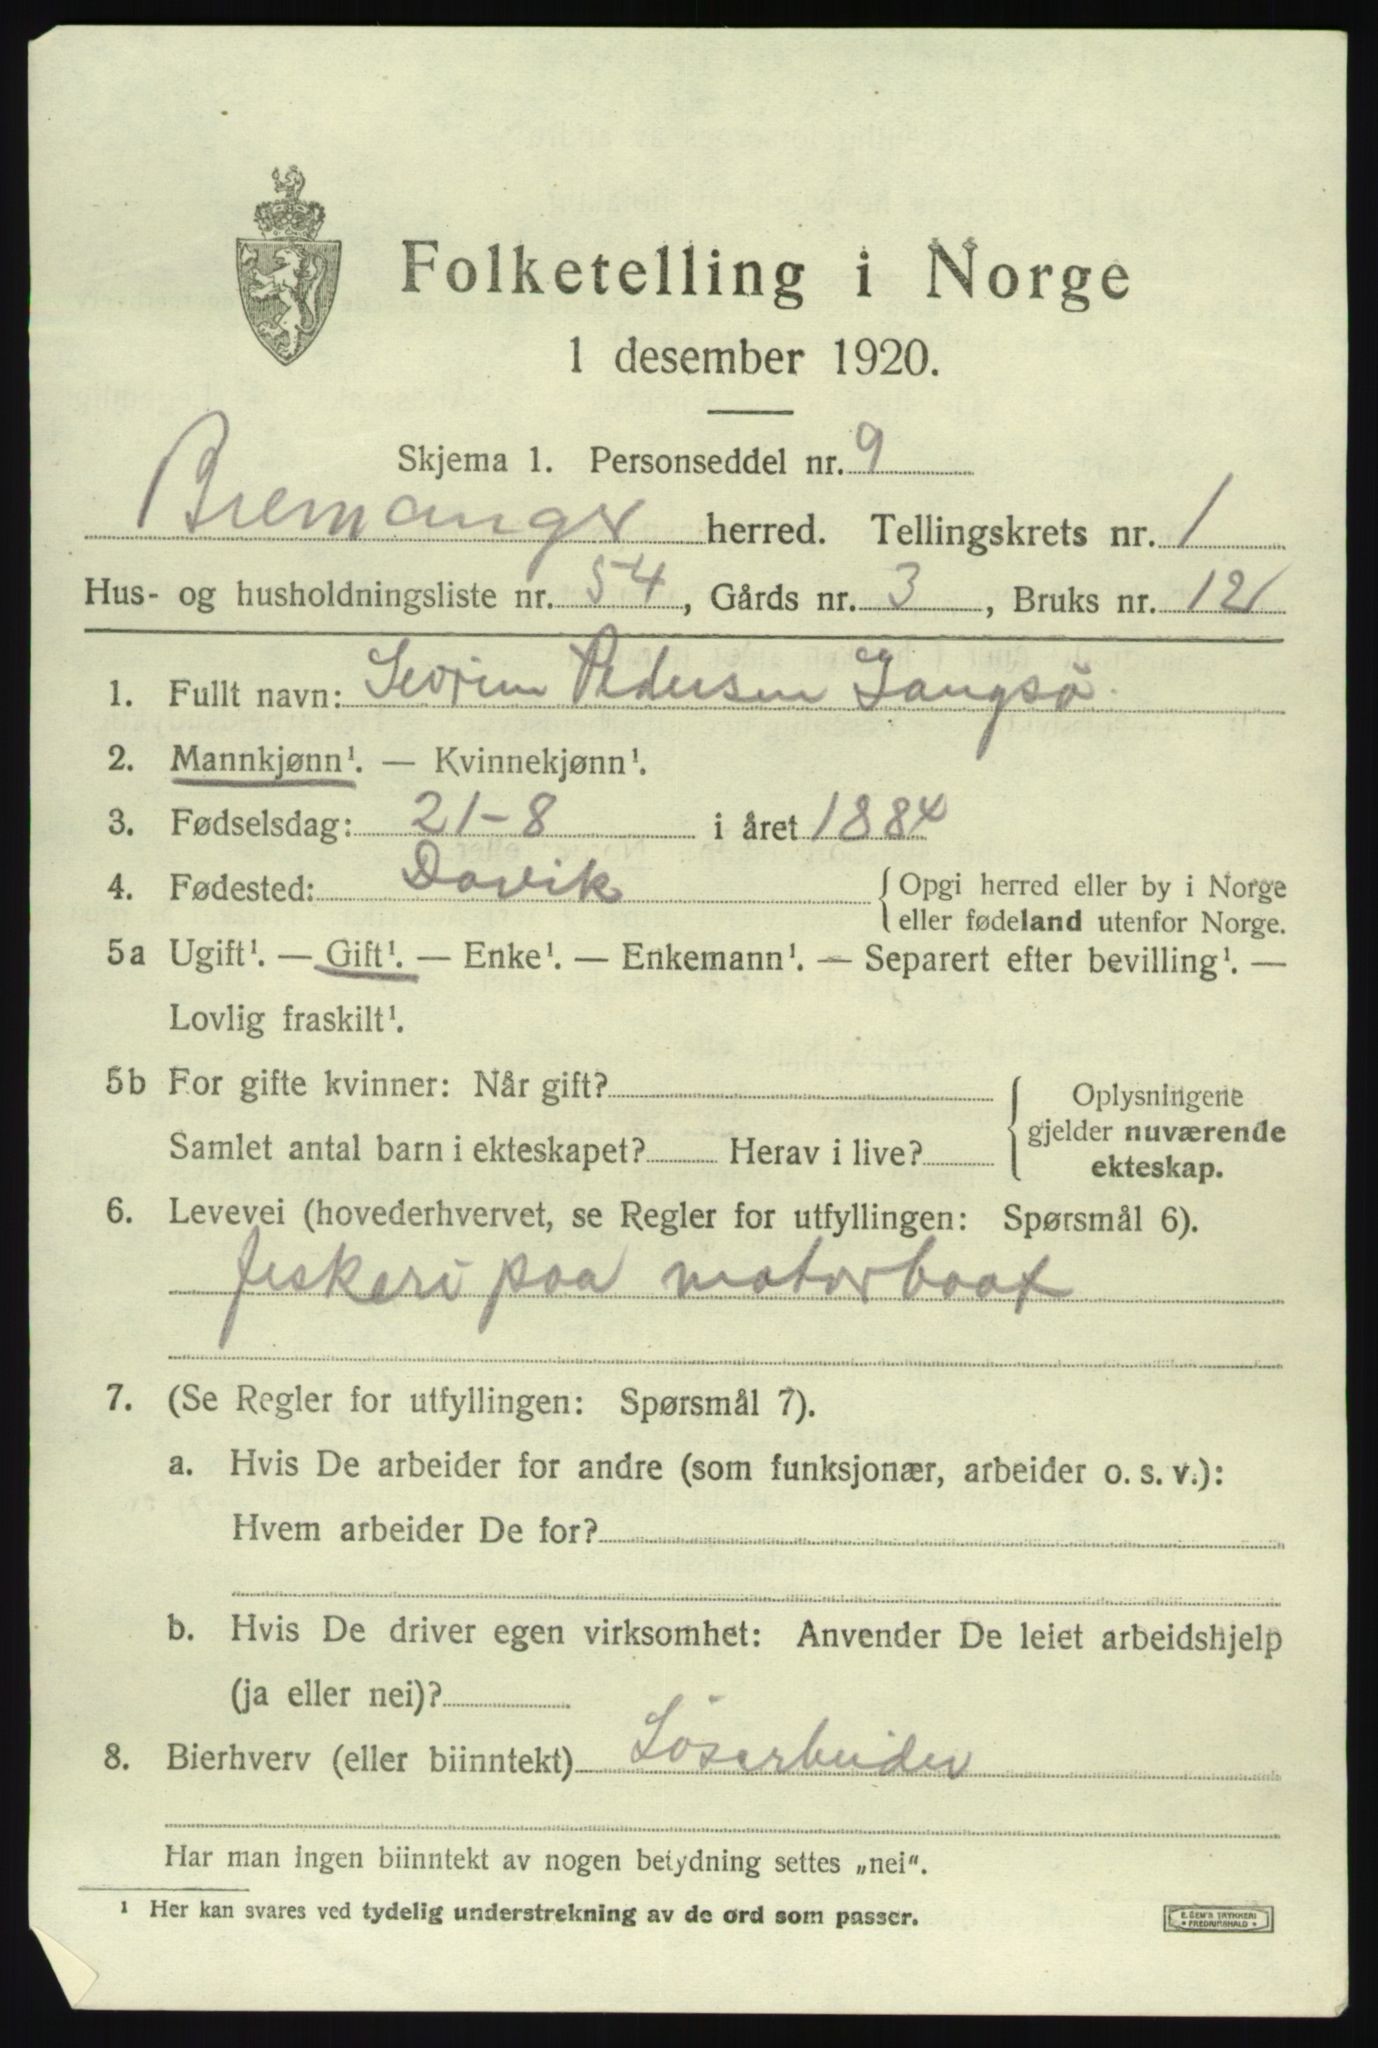 Folketelling i Norge
1 desember 1920.
Skjema 1. Personseddel nr. 9
Bremanger herred. Tellingskrets nr. 1
Hus- og husholdningsliste nr. 54, Gårds nr. 3, Bruks nr. 12
1. Fullt navn: Sevrin Pedersen Langsö
2. Mannkjønn¹. — Kvinnekjønn¹.
3. Fødselsdag: 21-8 i året 1884
4. Fødested: Davik {Opgi herred eller by i Norge
eller fødeland utenfor Norge.
5a Ugift¹. — Gift¹. — Enke¹. — Enkemann¹. — Separert efter bevilling¹. —
Lovlig fraskilt¹.
5b For gifte kvinner: Når gift? { Oplysningene
gjelder nuværende
Samlet antal barn i ekteskapet? Herav i live?
ekteskap.
6. Levevei (hovederhvervet, se Regler for utfyllingen: Spørsmål 6).
fiskeri paa motorbaat
7. (Se Regler for utfyllingen: Spørsmål 7).
a. Hvis De arbeider for andre (som funksjonær, arbeider o. s. v.):
Hvem arbeider De for?
b. Hvis De driver egen virksomhet: Anvender De leiet arbeidshjelp
(ja eller nei)?
8. Bierhverv (eller biinntekt) Lösarbeider
Har man ingen biinntekt av nogen betydning settes „nei".
¹ Her kan svares ved tydelig understrekning av de ord som passer.
E. SEM'S TRYKKERI
• FREDRIKSHALD •